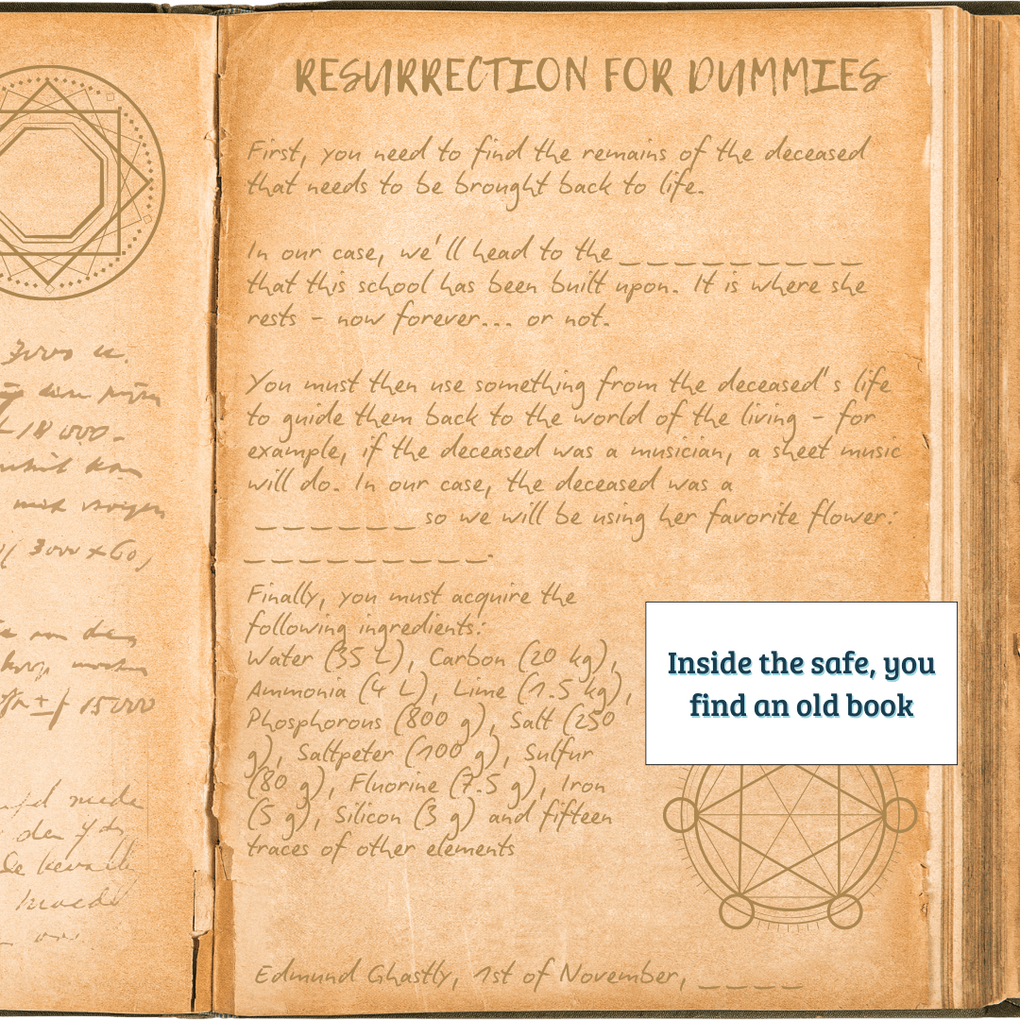 RESURRECTION FOR DUMMIES
First, you need to find the remains of the deceased
that needs to be brought back to life.
In our case, we'll head to the __________
that this school has been built upon. It is where she
rests - now forever... or not.
You must then use something from the deceased's life
to guide them back to the world of the living - for
example, if the deceased was a musician, a sheet music
will do. In our case, the deceased was a
______ so we will be using her favorite flower:
_________.
Finally, you must acquire the
following ingredients:
Water (35 L), Carbon (20 kg),
Ammonia (4 L), Lime (1.5 kg),
Phosphorous (800 g), Salt (250
g), Saltpeter (100 g), Sulfur
(80 g), Fluorine (7.5 g), Iron
(5 g), Silicon (3 g) and fifteen
traces of other elements
Inside the safe, you
find an old book
Edmund Ghastly, 1st of November, ____